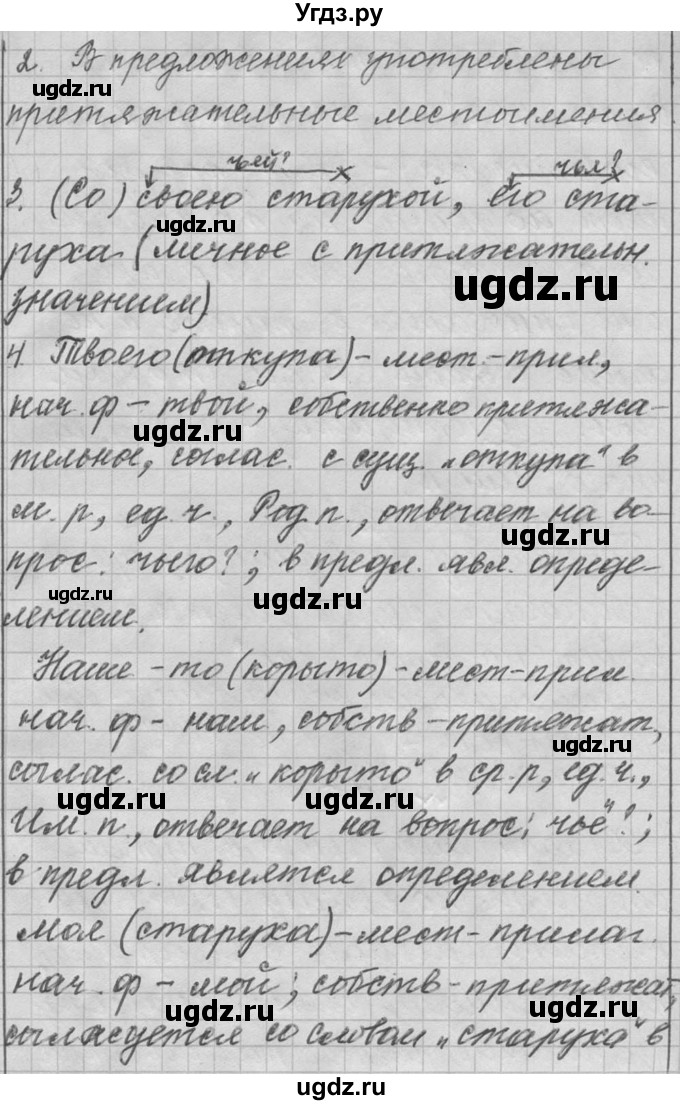 Угдз.ру
2. В предложениях употреблены
притяжательные местоимения.
чьей? чья?
3. (Со) своею старухой, его ста-
руха (личное с притяжательн.
значением)
4 Твоего (откупа) - мест.-прил.,
нач. ф - твой, собственно притяжа-
тельное, соглас. с сущ. „откупа" в
м. р, ед. ч., Род. п., отвечает на во-
прос: чьего?; в предл. явл. опреде-
лением.
Наше - то (корыто) - мест-прил.
нач. ф - наш, собств - притяжат,
соглас. со сл. „корыто" в ср. р, ед. ч.,
Им. п., отвечает на вопрос: чьё?;
в предл. является определением.
моя (старуха) - мест - прилаг.
нач. ф - мой; собств - притяжат,
согласуется со словом „старуха" в
ugdz.ru
ugdz.ru
ugdz.ru
ugdz.ru
ugdz.ru
ugdz.ru
ugdz.ru
ugdz.ru
ugdz.ru
ugdz.ru
ugdz.ru
ugdz.ru
ugdz.ru
ugdz.ru